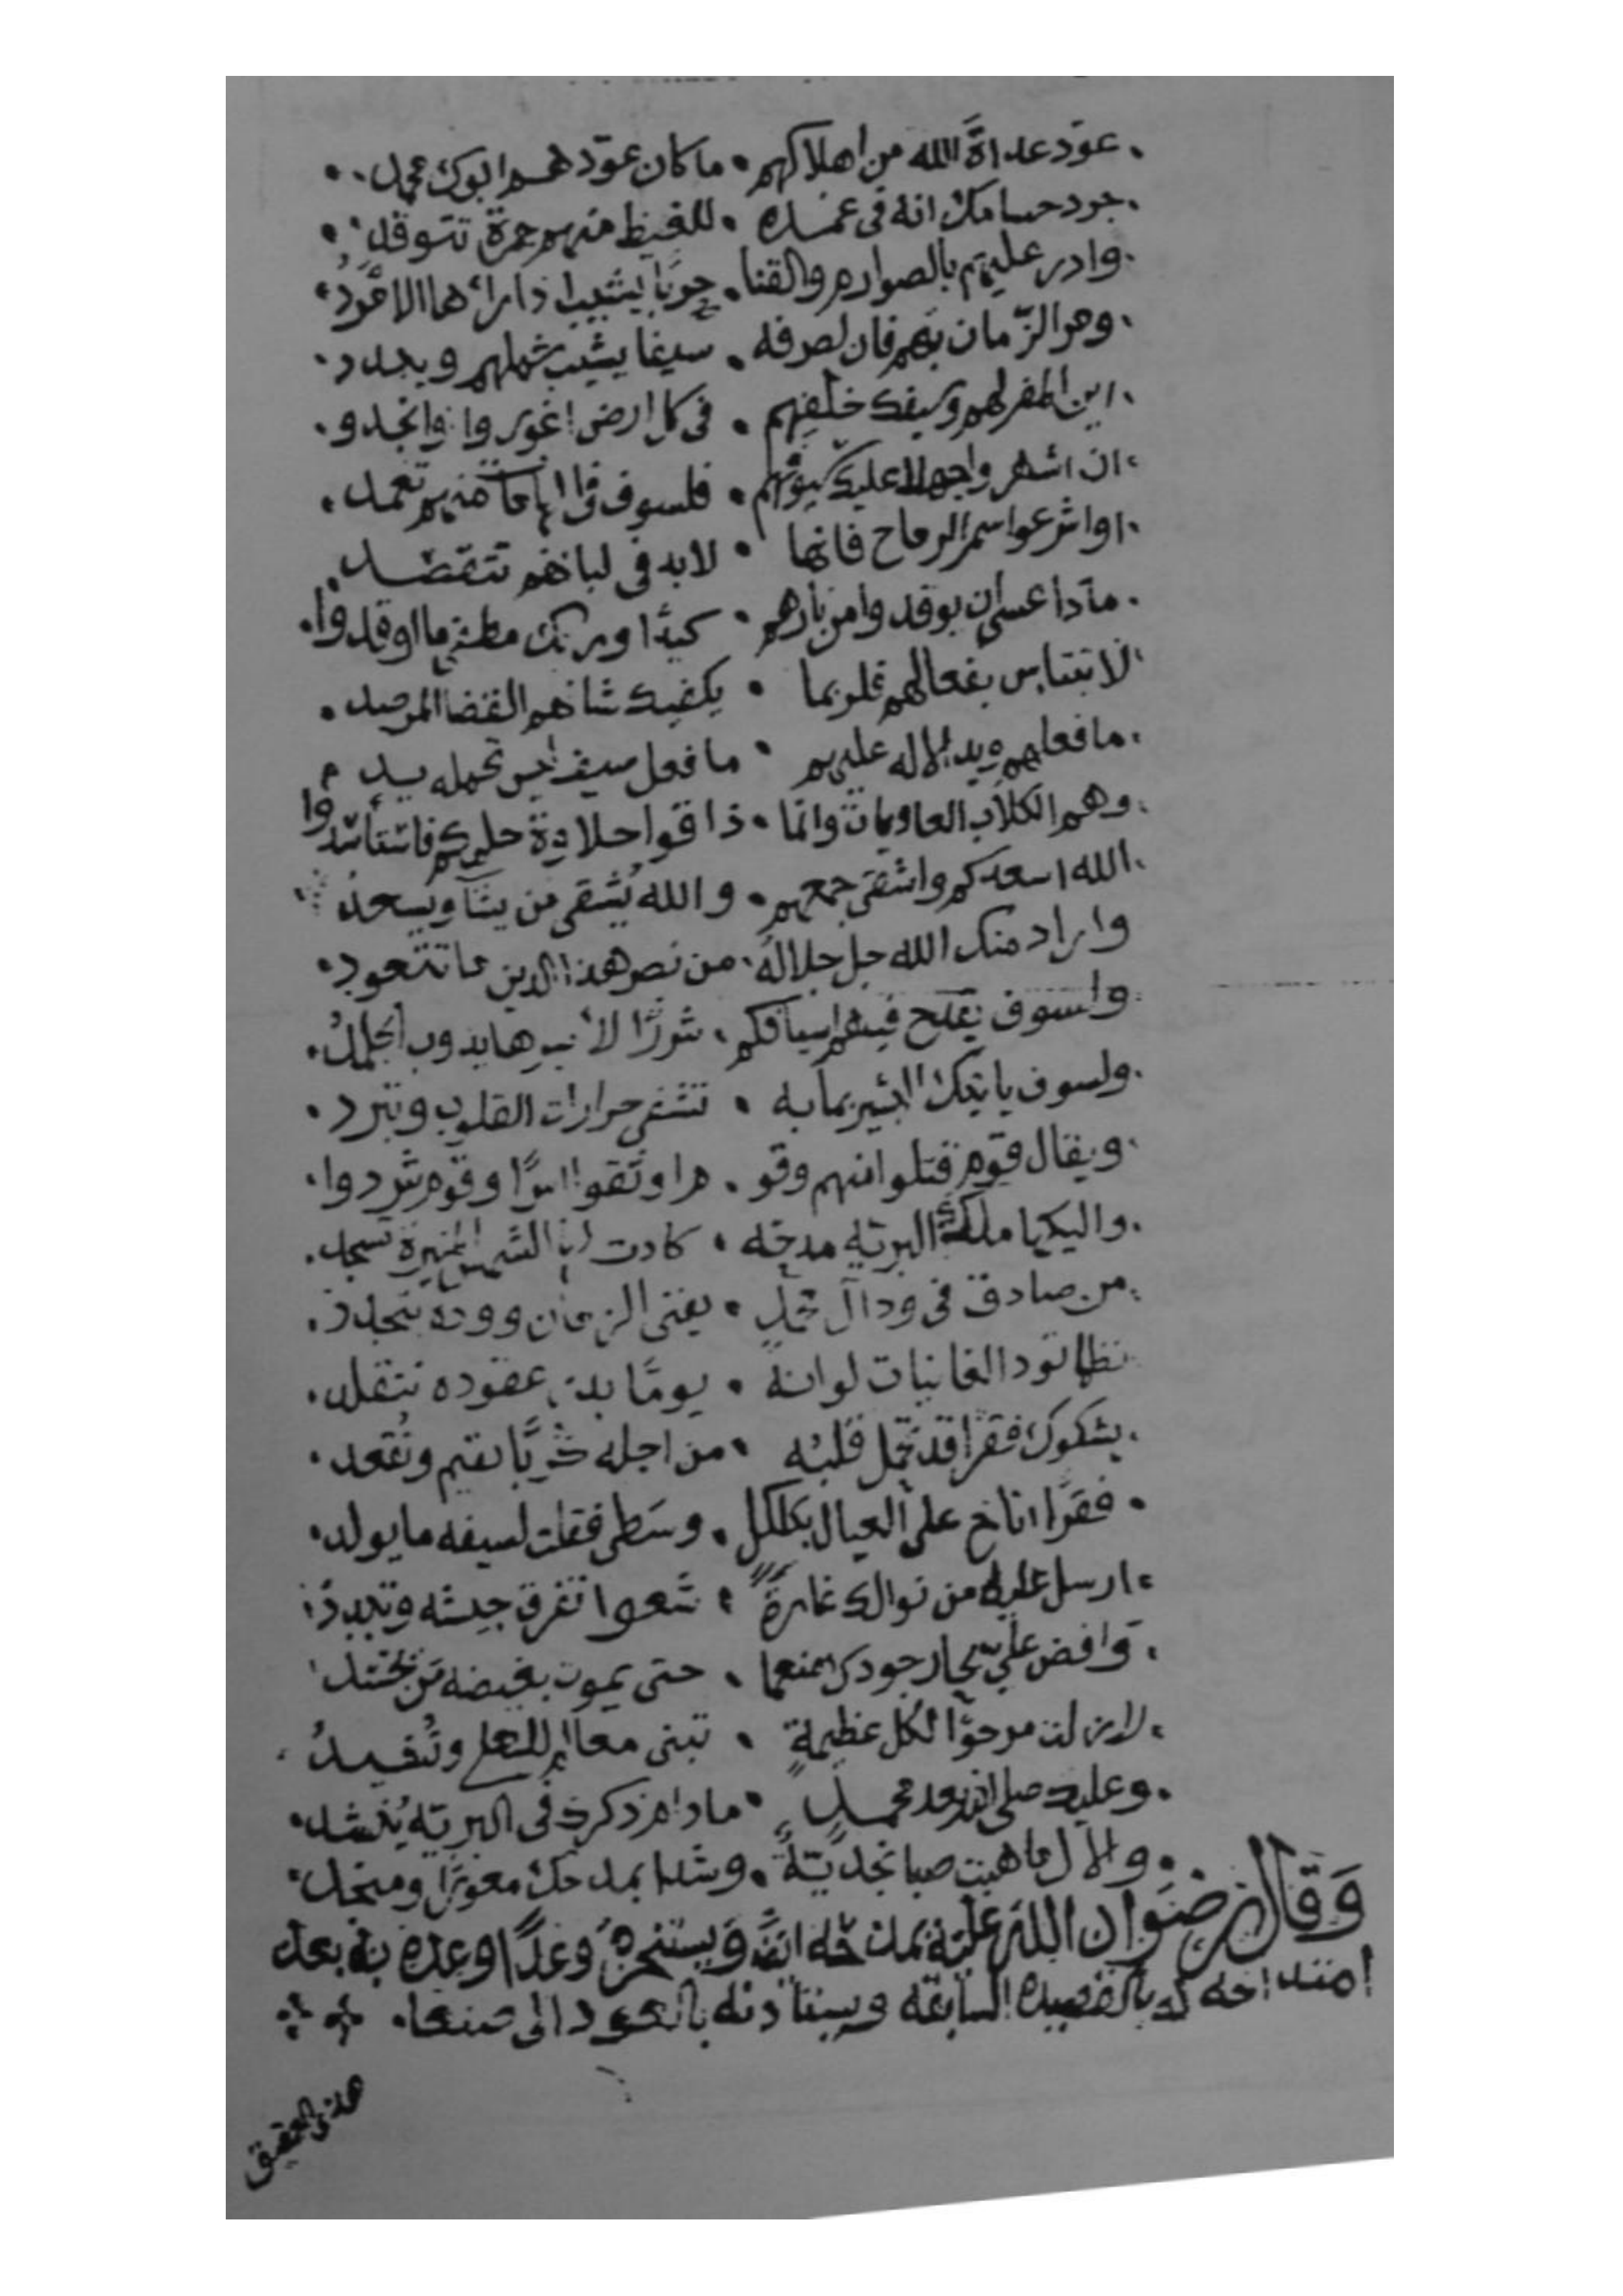 عوّد عداةَ الله من اهلاكهم • ما كان عوّدهم ابوك محمد
جرد حسامك انه في غمده • للغيظ منهم جمرة تتوقد
وادر عليهم بالصوارم والقنا • حربًا يشيب اذا رأها الامرد
ومر الزّمان بهم فان لصرفه • سيفا يشيب شملهم ويبدد
اين المفر لهم وسيفك خلفهم • في كل ارض اغوروا وانجدو
ان اشهروا جهلا عليك سيوفهم • فلسوف في هاماتهم تغمد
او اشرعوا سمر الرماح فانها • لا بد في لباتهم تتقصد
ماذا عسى ان يوقدوا من نارهم • كيدًا وربك مطفي ما اوقدوا
لا تبتاس بفعالهم فلربما • يكفيك شانهم القضا المرصد
ما فعلهم ويد الاله عليهم • ما فعل سيف ليس تحمله يد
وهم الكلاب العاويات وانما • ذاقوا حلاوة حلمكم فاستأسدوا
الله اسعدكم واشقى جمعهم • والله يُشقي من يشآ ويسعد
واراد منك الله جل جلاله • من نصر هذا الدين ما تتعود
ولسوف يقدح فيهم اسيافكم • شررًا لأيسرها يذوب الجلمدُ
ولسوف ياتيك البشير بما به • تشفى حرارات القلوب وتبرد
ويقال قوم قتلوا منهم وقو • م اوثقوا اسرًا وقوم شردوا
واليك يا ملك البرية مدحة • كادت لها الشمس المنيرة تسجد
من صادق في ود آل محمدٍ • يفنى الزمان ووده يتجدد
نظما تود الغانيات لو انه • يومًا بدر عقوده تتقلد
يشكوك فقرا قد تحمل قلبه • من اجله كربا تقيم وتُقعد
فقرًا اناخ على العيال بكلكل • وسطى فقلت لسيفه ما يولد
ارسل عليه من نوالك غارةً • شعوا تفرق جيشه وتبدد
وافض عليّ بحار جودك منعما • حتى يموت بغيضه من يحسد
لا زلت مرجوّا لكل عظيمةٍ • تبنى معالم للعلى وتُشيدُ
وعليك صلى الله بعد محمدٍ • ما دام ذكرك في البرية يُنشد
والال ما هبت صبا نجديّةً • وشدا بمدحك مغور ومنجد
وَقَال رضوَان اللّه عَليَه يمدحُه ايضًا وَيستنجزهُ وَعدًا وعده به بعد
امتداحه له بالقصيده السابقة ويستاذنه بالعود الى صنعا
هذي العقيق